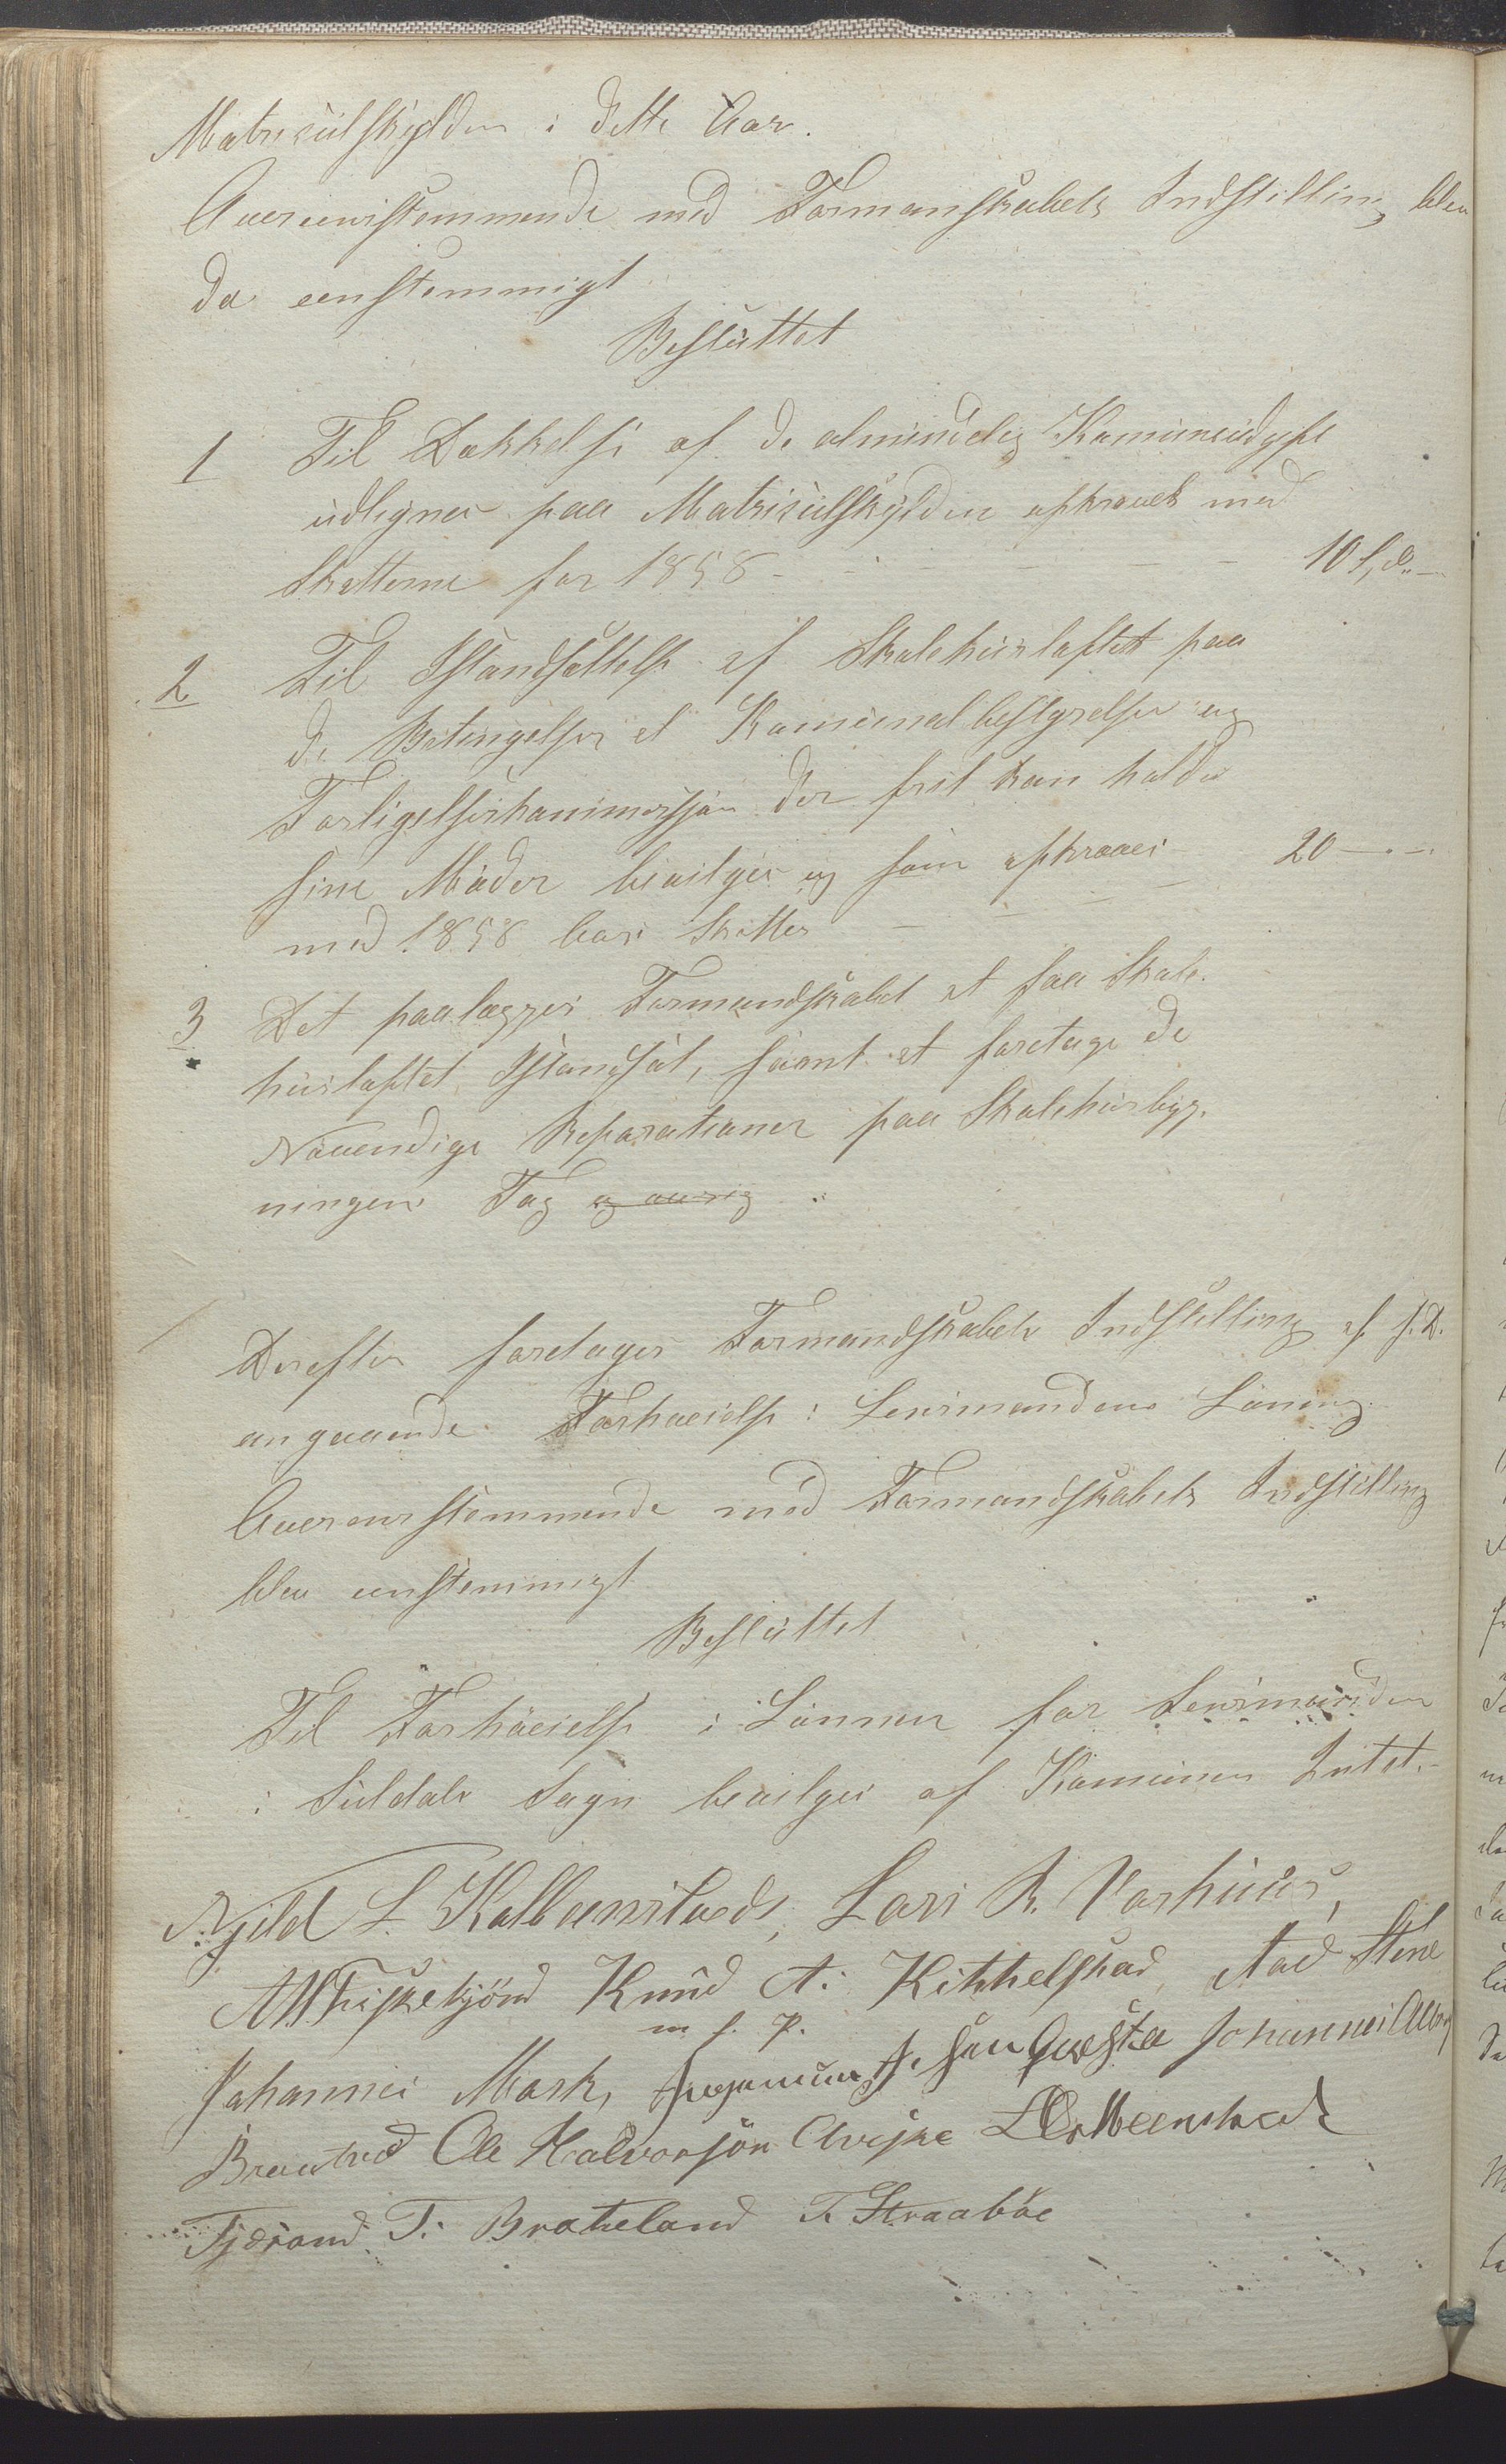 Matriculskylden i dette Aar.
Overeensstemmende med Formanskabets Indstilling blev
da eenstemmigt
Besluttet
1 Til Dækkelse af de almindelig Komuneudgift
udlignes paa Matriculskylden opkrævet med
Skatterne for 1858 - - - - - 10 s,d.. -
2 Til Istandsættelse af Skolehusloftet paa
de Betingelser at Komunalbestyrelsen og
Forligelseskommissjon der frit kan holde
sine Møder bevilges og som opkræves 20 - . -
med 1858 Aars Skatter - - -
3 Det paalægges Formandskabet at faa Skole-
husloftet Istandsat, samt at foretage de
Nøvendige Reparationer paa Skolehusbyg-
ningens Tag og øvrig .
Derefter foretages Formandskabets Indstilling af s. D.
angaaende Forhøielse i Lensmandens Løning.
Overensstemmende med Formandskabets Indstilling
blev eenstemmigt
Besluttet
Til Forhøielse i Lønnen for Lensmanden
i Suldals Sogn bevilges af Komunen Intet.-
Njild L. Kalbeinstvedt, Lars R. Varhuus,
Fisketjönd Knud A. Kittelstad, Aad Stene
m. f. P.
Johannes Mork, Kvæstad Johannes
Brautved Ole Halvorsön
Tjerand T. Brateland T. Straaböe